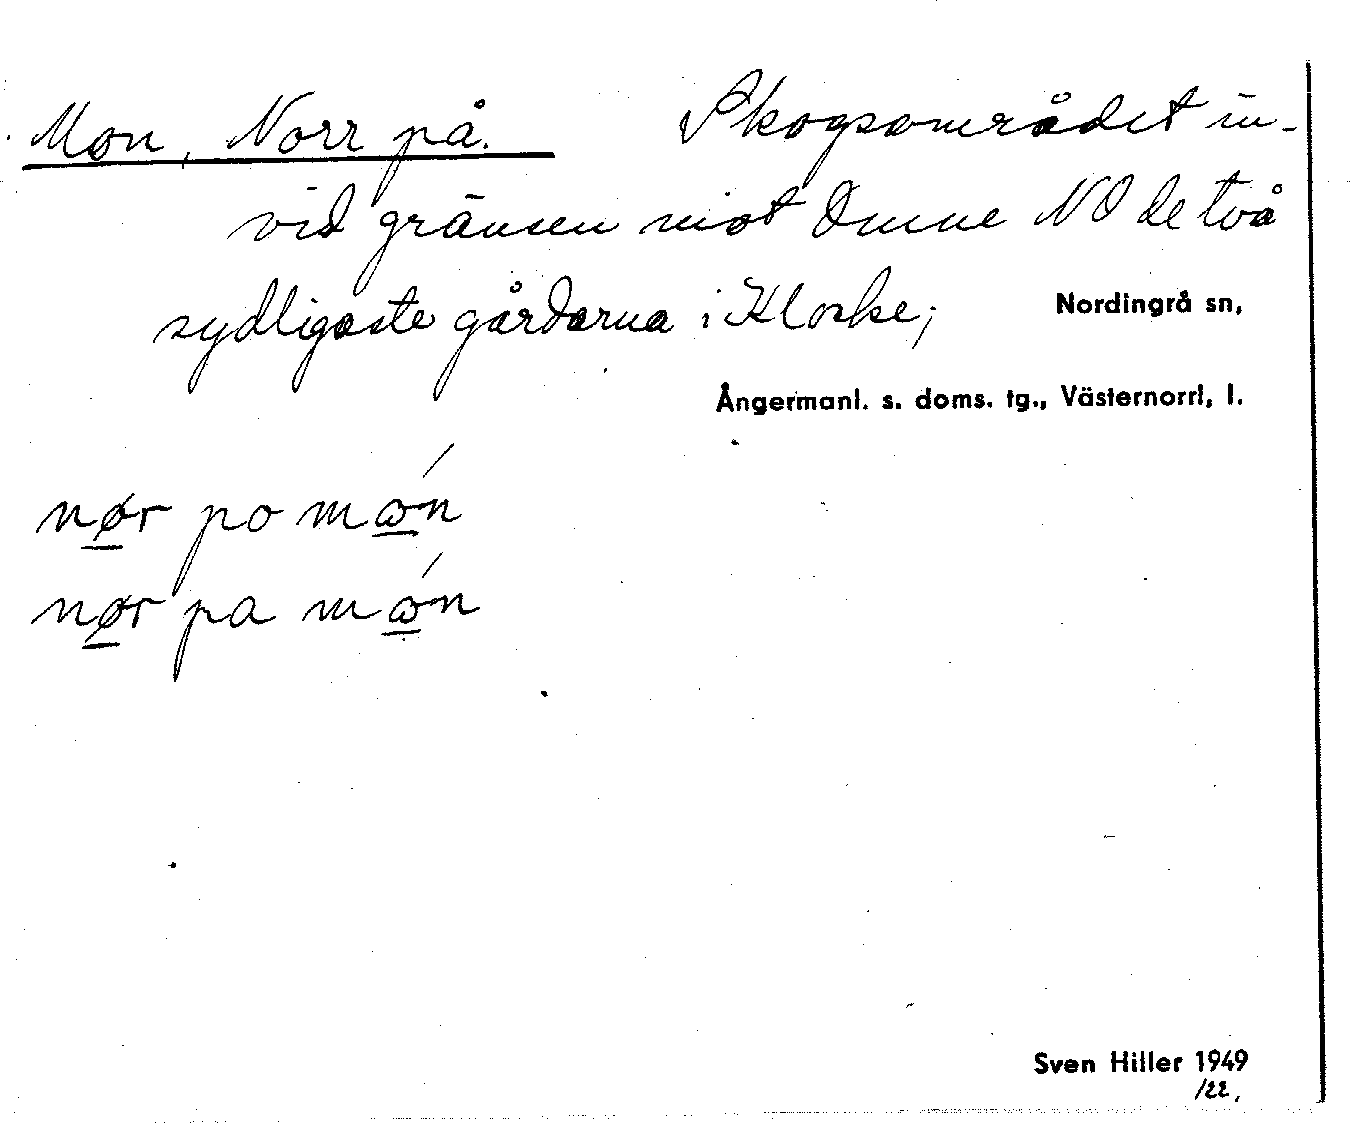 Mon, Norr på. Skogsområdet in-
vid gränsen mot Omne NO de två
sydligaste gårdarna i Klocke;
Nordingrå sn,
Ångermanl. s. doms. tg., Västernorrl. l.
nør po mωn
nør pa mωn
Sven Hiller 1949
/22.